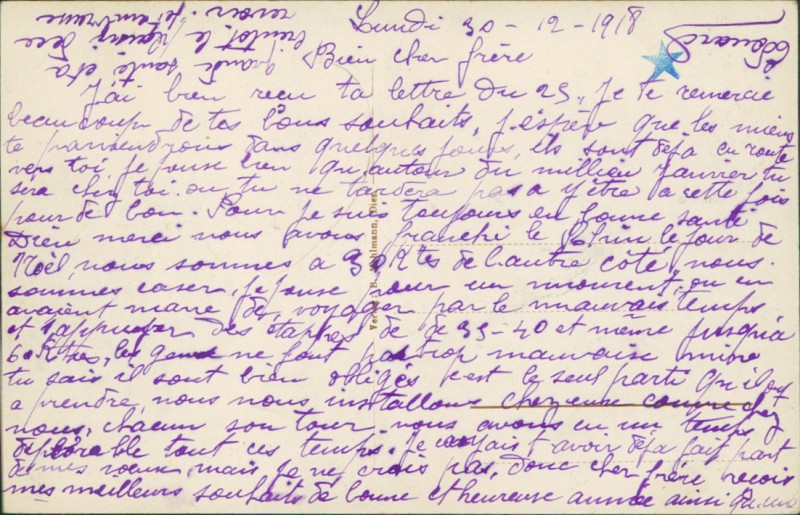 Lundi 30-12-1918
Bien cher frère
J'ai bien reçu ta lettre du 25, je te remercie
beaucoup de tes bons souhaits, j'espère que les miens
te parviendrons dans quelques jours, ils sont déjà en route
vers toi, je pense bien qu'autour du millieu Janvier tu
sera chez toi ou tu ne tardera pas a y être a cette fois
pour de bon. Pour je suis toujours en bonne santé
Dieu merci nous avons franchi le Rhin le jour de
Noël nous sommes a 30 Kts de l'autre côté, nous
sommes caser, je pense pour un moment, ou en
avaient marre de, voyager par le mauvais temps
et s'appuyer des étapes de de 35-40 et même jusqu'a
60 Ktes, les gens ne font pas trop mauvaise mine
tu sais il sont bien obligés c'est le seul parti qu'il est
a prendre, nous nous installons chez eux comme chez
nous, chacun son tour nous avons eu un temps
déplorable tout ces temps. Je t'avoir déja fait part
de mes voeux, mais je ne crois pas, donc cher frère reçois
mes meilleurs souhaits de bonne et heureuse année ainsi qu'une
grande santé et a
bientôt le plaisir de se
revoir. Je t'embrasse
Edouard
Verlag: B. Mehlmann, Diez